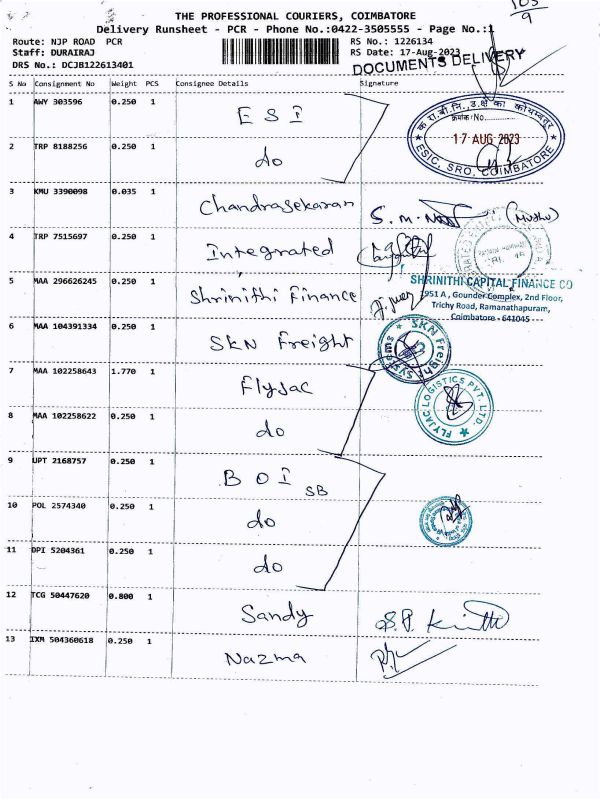 105/9
THE PROFESSIONAL COURIERS, COIMBATORE
Delivery Runsheet - PCR - Phone No.:0422-3505555 - Page No.:1
Route: NJP ROAD PCR RS No.: 1226134
Staff: DURAIRAJ RS Date: 17-Aug-2023
DRS No.: DCJB122613401 DOCUMENTS DELIVERY
S No Consignment No Weight PCS Consignee Details Signature
1 AWY 303596 0.250 1 ESI
क.रा.बी.नि., उ.क्षे का कोयम्बतूर
क्रमांक/No.
17 AUG 2023
ESIC, SRO, COIMBATORE
2 TRP 8188256 0.250 1 do
3 KMU 3390098 0.035 1 Chandrasekaran S.M.
4 TRP 7515697 0.250 1 Integrated
5 MAA 296626245 0.250 1 Shrinithi Finance
SHRINITHI CAPITAL FINANCE CO
1951 A, Gounder Complex, 2nd Floor,
Trichy Road, Ramanathapuram,
Coimbatore - 641045
6 MAA 104391334 0.250 1 SKN Freight
SKN Freight
7 MAA 102258643 1.770 1 Flyjac
FLYJAC LOGISTICS PVT. LTD.
8 MAA 102258622 0.250 1 do
9 UPT 2168757 0.250 1 BOI SB
10 POL 2574340 0.250 1 do
11 DPI 5204361 0.250 1 do
12 TCG 50447620 0.800 1 Sandy
13 IXM 504360618 0.250 1 Nazma